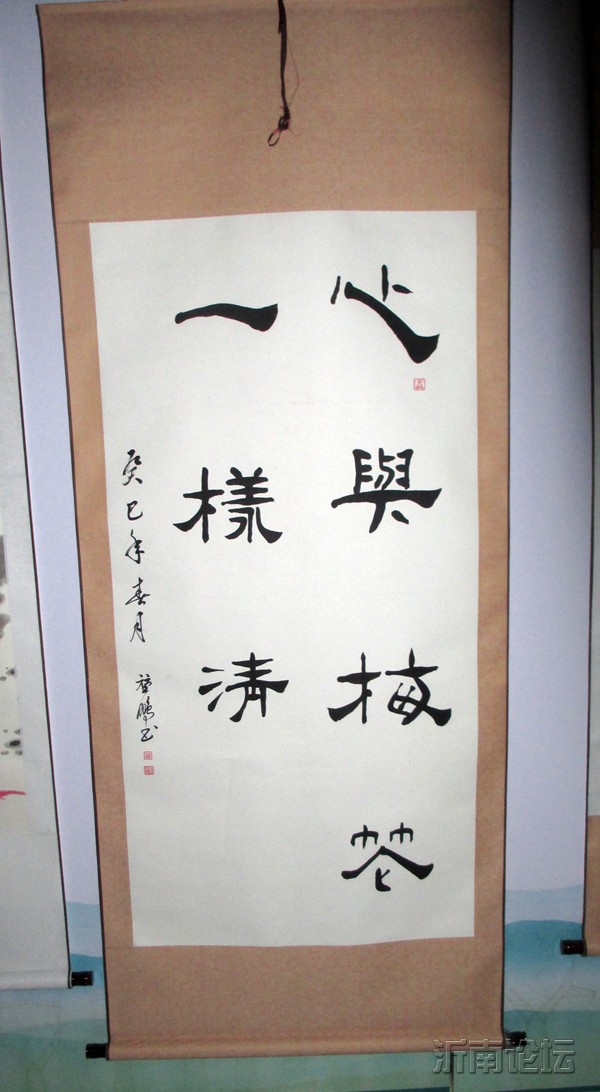 心與梅花
一樣清
癸巳年春月 鵬書
沂南论坛